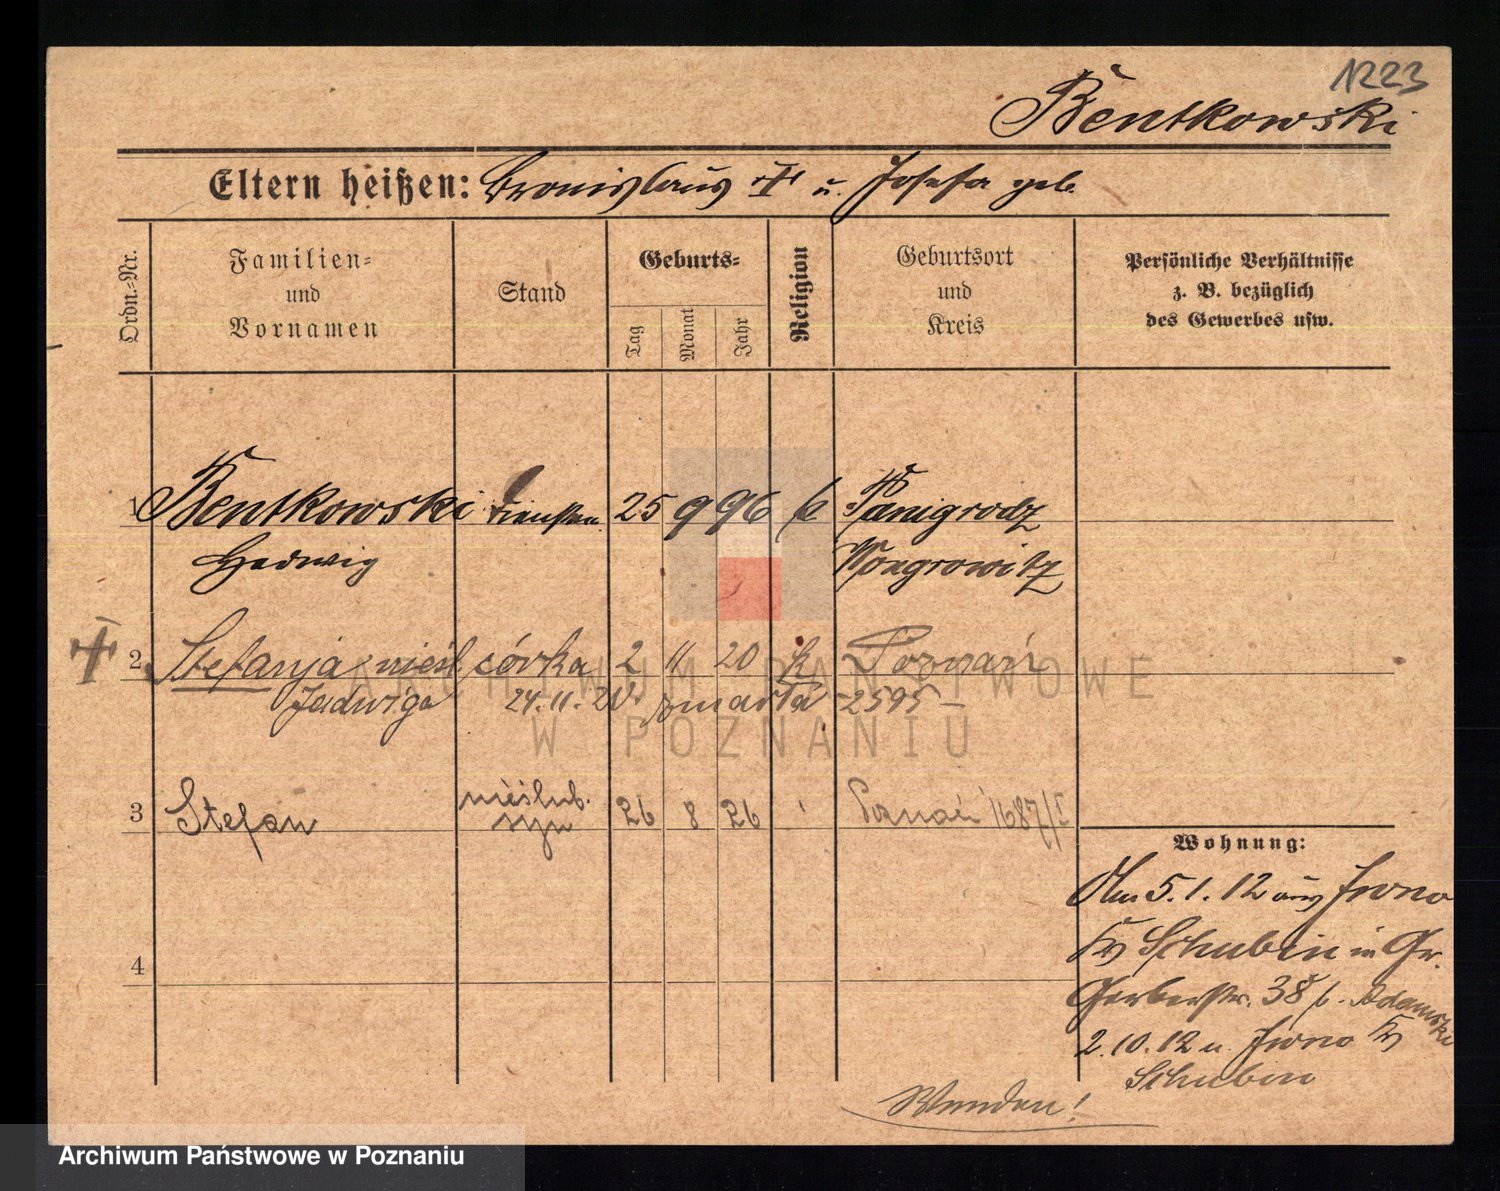 1223
Bentkowski
Eltern heißen: Bronislaus † u. Josefa geb.
Ordn.-Nr.
Familien- und Vornamen
Stand
Geburts-
Tag
Monat
Jahr
Religion
Geburtsort und Kreis
Persönliche Verhältnisse
z. B. bezüglich
des Gewerbes usw.
1 Bentkowski 25 9 96 k Panigrodz
Hedwig Wongrowitz
2 Stefanja nieśl. córka 2 11 20 k Poznań
Jadwiga 24.11.20 zmarła 2595
3 Stefan nieślub. syn 26 8 26 Poznań 1687/I
4
Wohnung:
5.1.12 aus Iwno
Kr Schubin in Gr.
Gerberstr. 38 b. Adamski
2.10.12 n. Iwno Kr
Schubin
Wenden!
ARCHIWUM PAŃSTWOWE
W POZNANIU
Archiwum Państwowe w Poznaniu